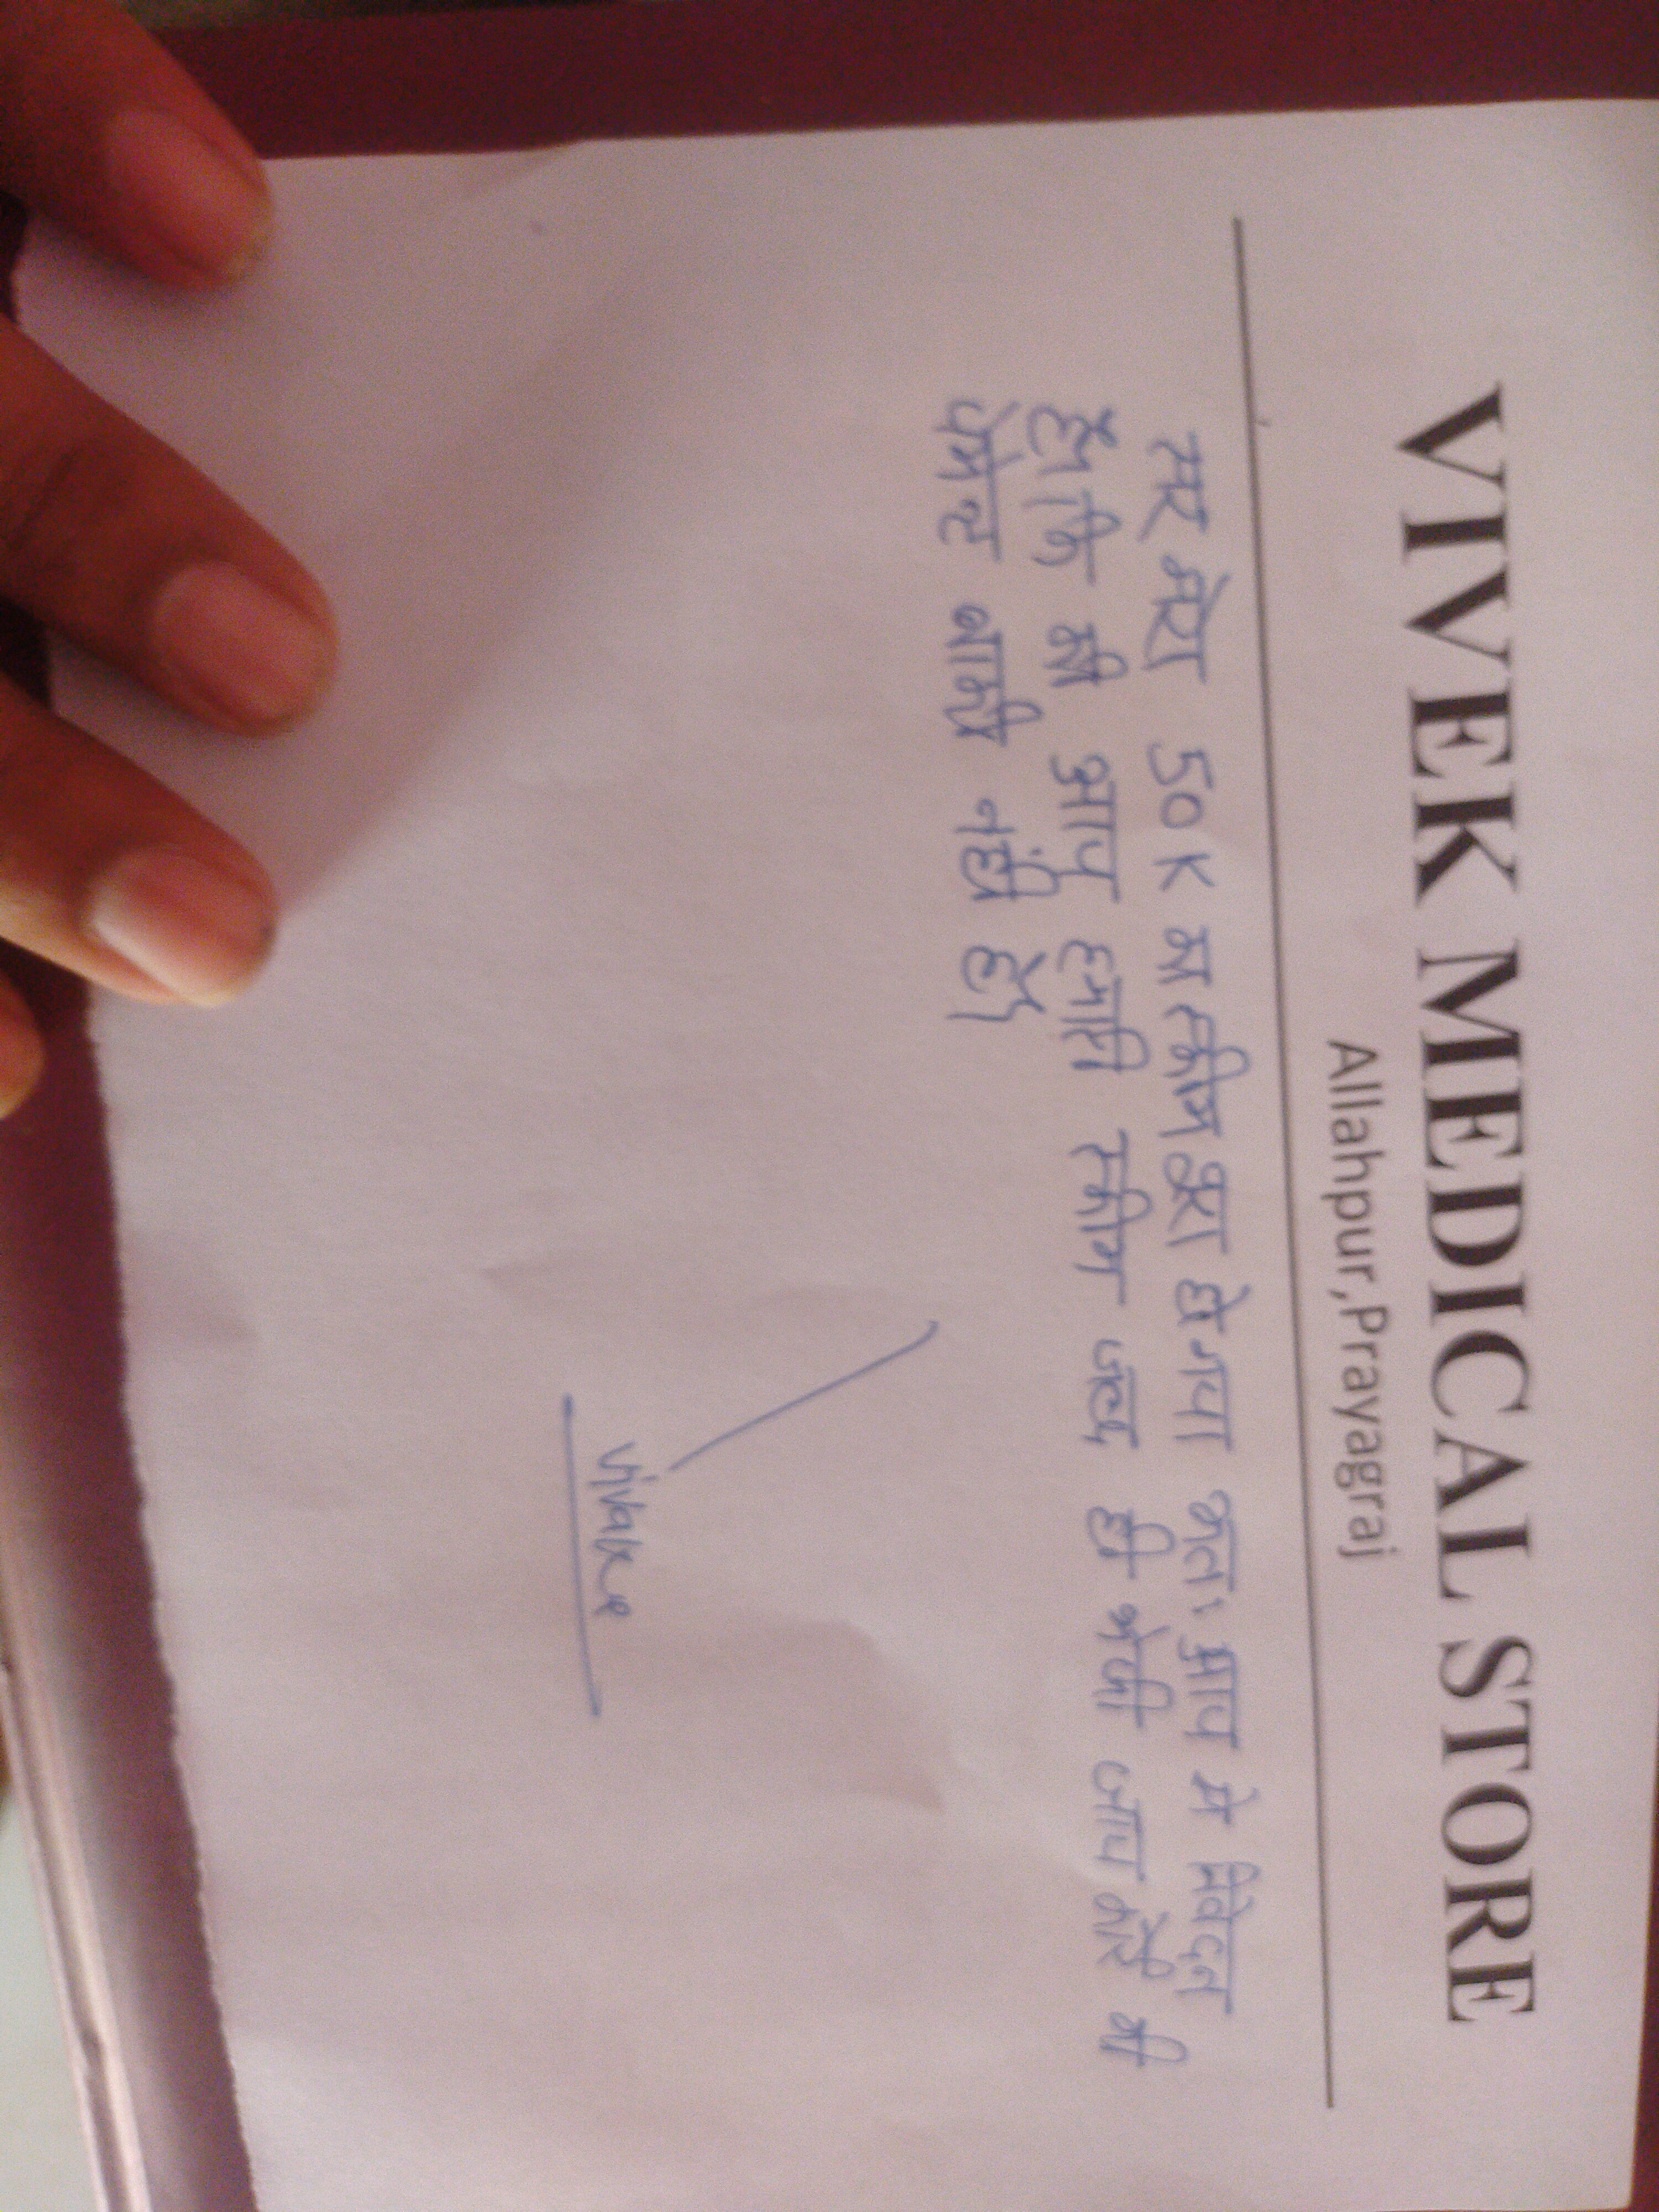 VIVEK MEDICAL STORE
Allahpur,Prayagraj
सर मेरा 50K का स्कीम पूरा हो गया अतः आप से निवेदन
है कि की आप हमारी स्कीम जल्द ही भेजी जाय कोई भी
पेमेन्ट बाकी नहीं है।
Vivek